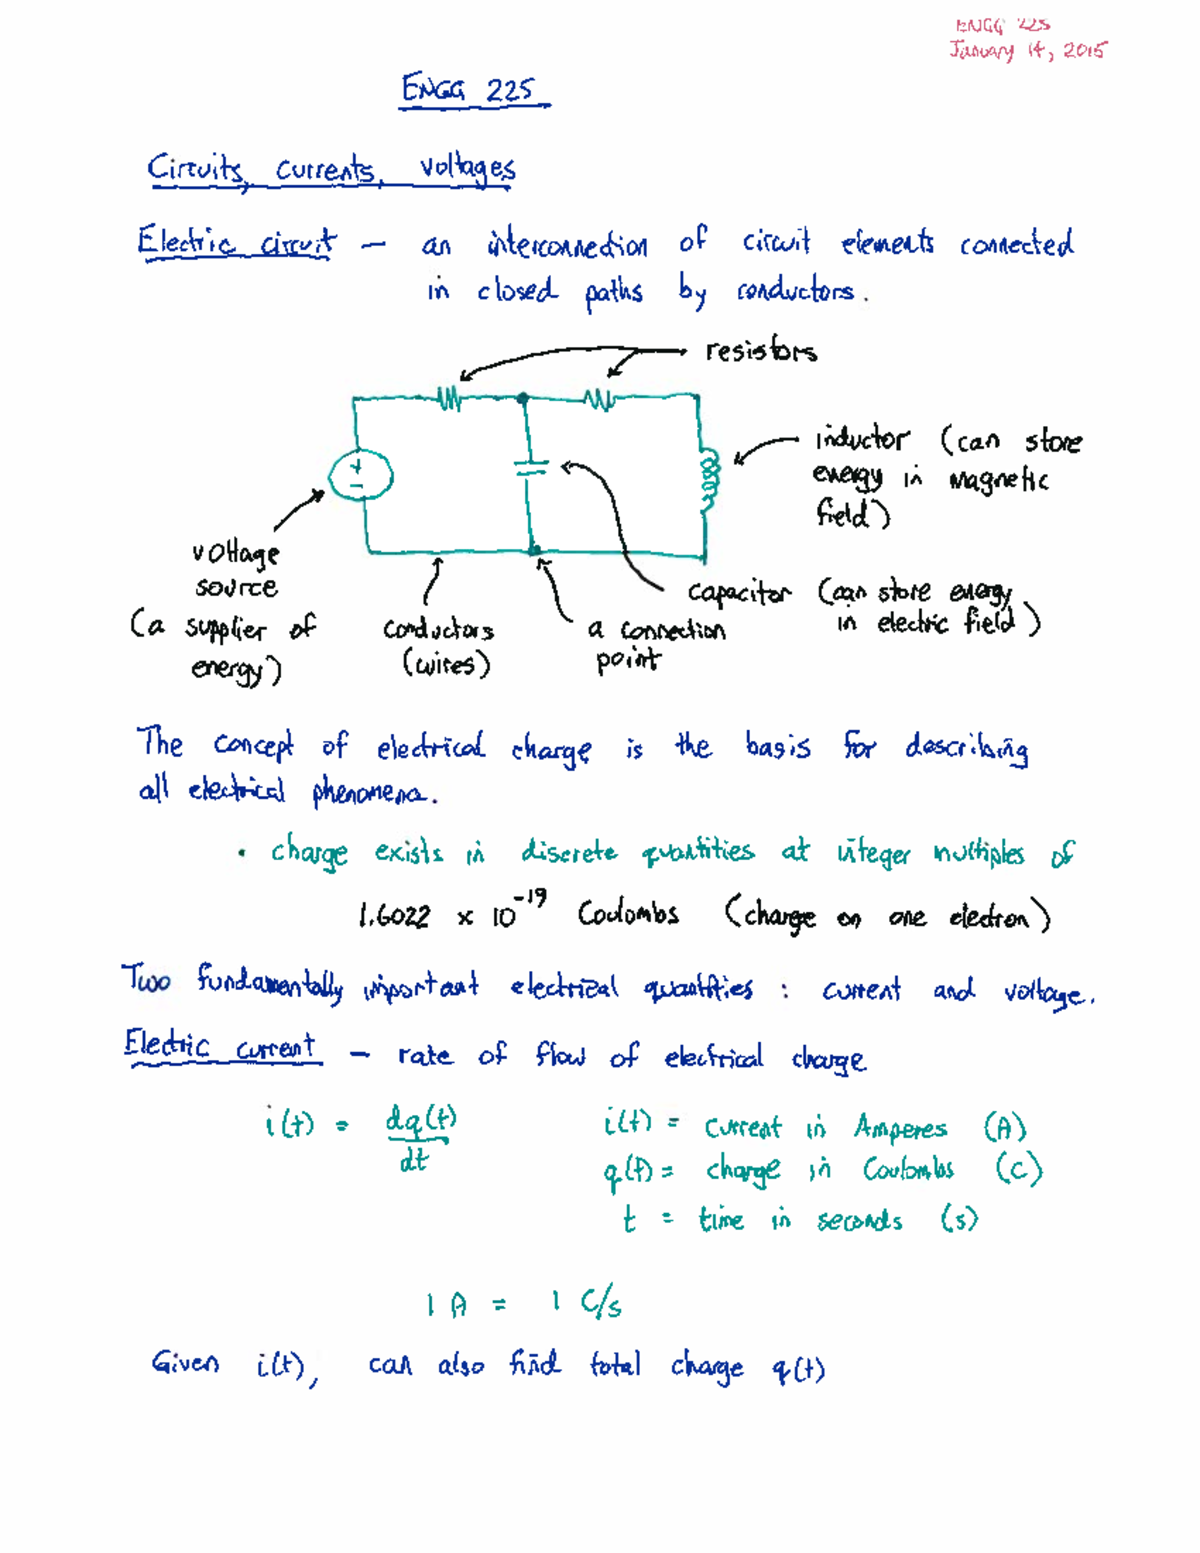 ENGG 225
January 14, 2015
ENGG 225
Circuits, currents, voltages
Electric circuit — an interconnection of circuit elements connected
in closed paths by conductors.
resistors
inductor (can store
energy in magnetic
field)
+
−
voltage
source
(a supplier of
energy)
conductors
(wires)
a connection
point
capacitor (can store energy
in electric field)
The concept of electrical charge is the basis for describing
all electrical phenomena.
• charge exists in discrete quantities at integer multiples of
1.6022 × 10⁻¹⁹ Coulombs (charge on one electron)
Two fundamentally important electrical quantities : current and voltage.
Electric current — rate of flow of electrical charge
i(t) = dq(t)/dt
i(t) = current in Amperes (A)
q(t) = charge in Coulombs (C)
t = time in seconds (s)
1 A = 1 C/s
Given i(t), can also find total charge q(t)